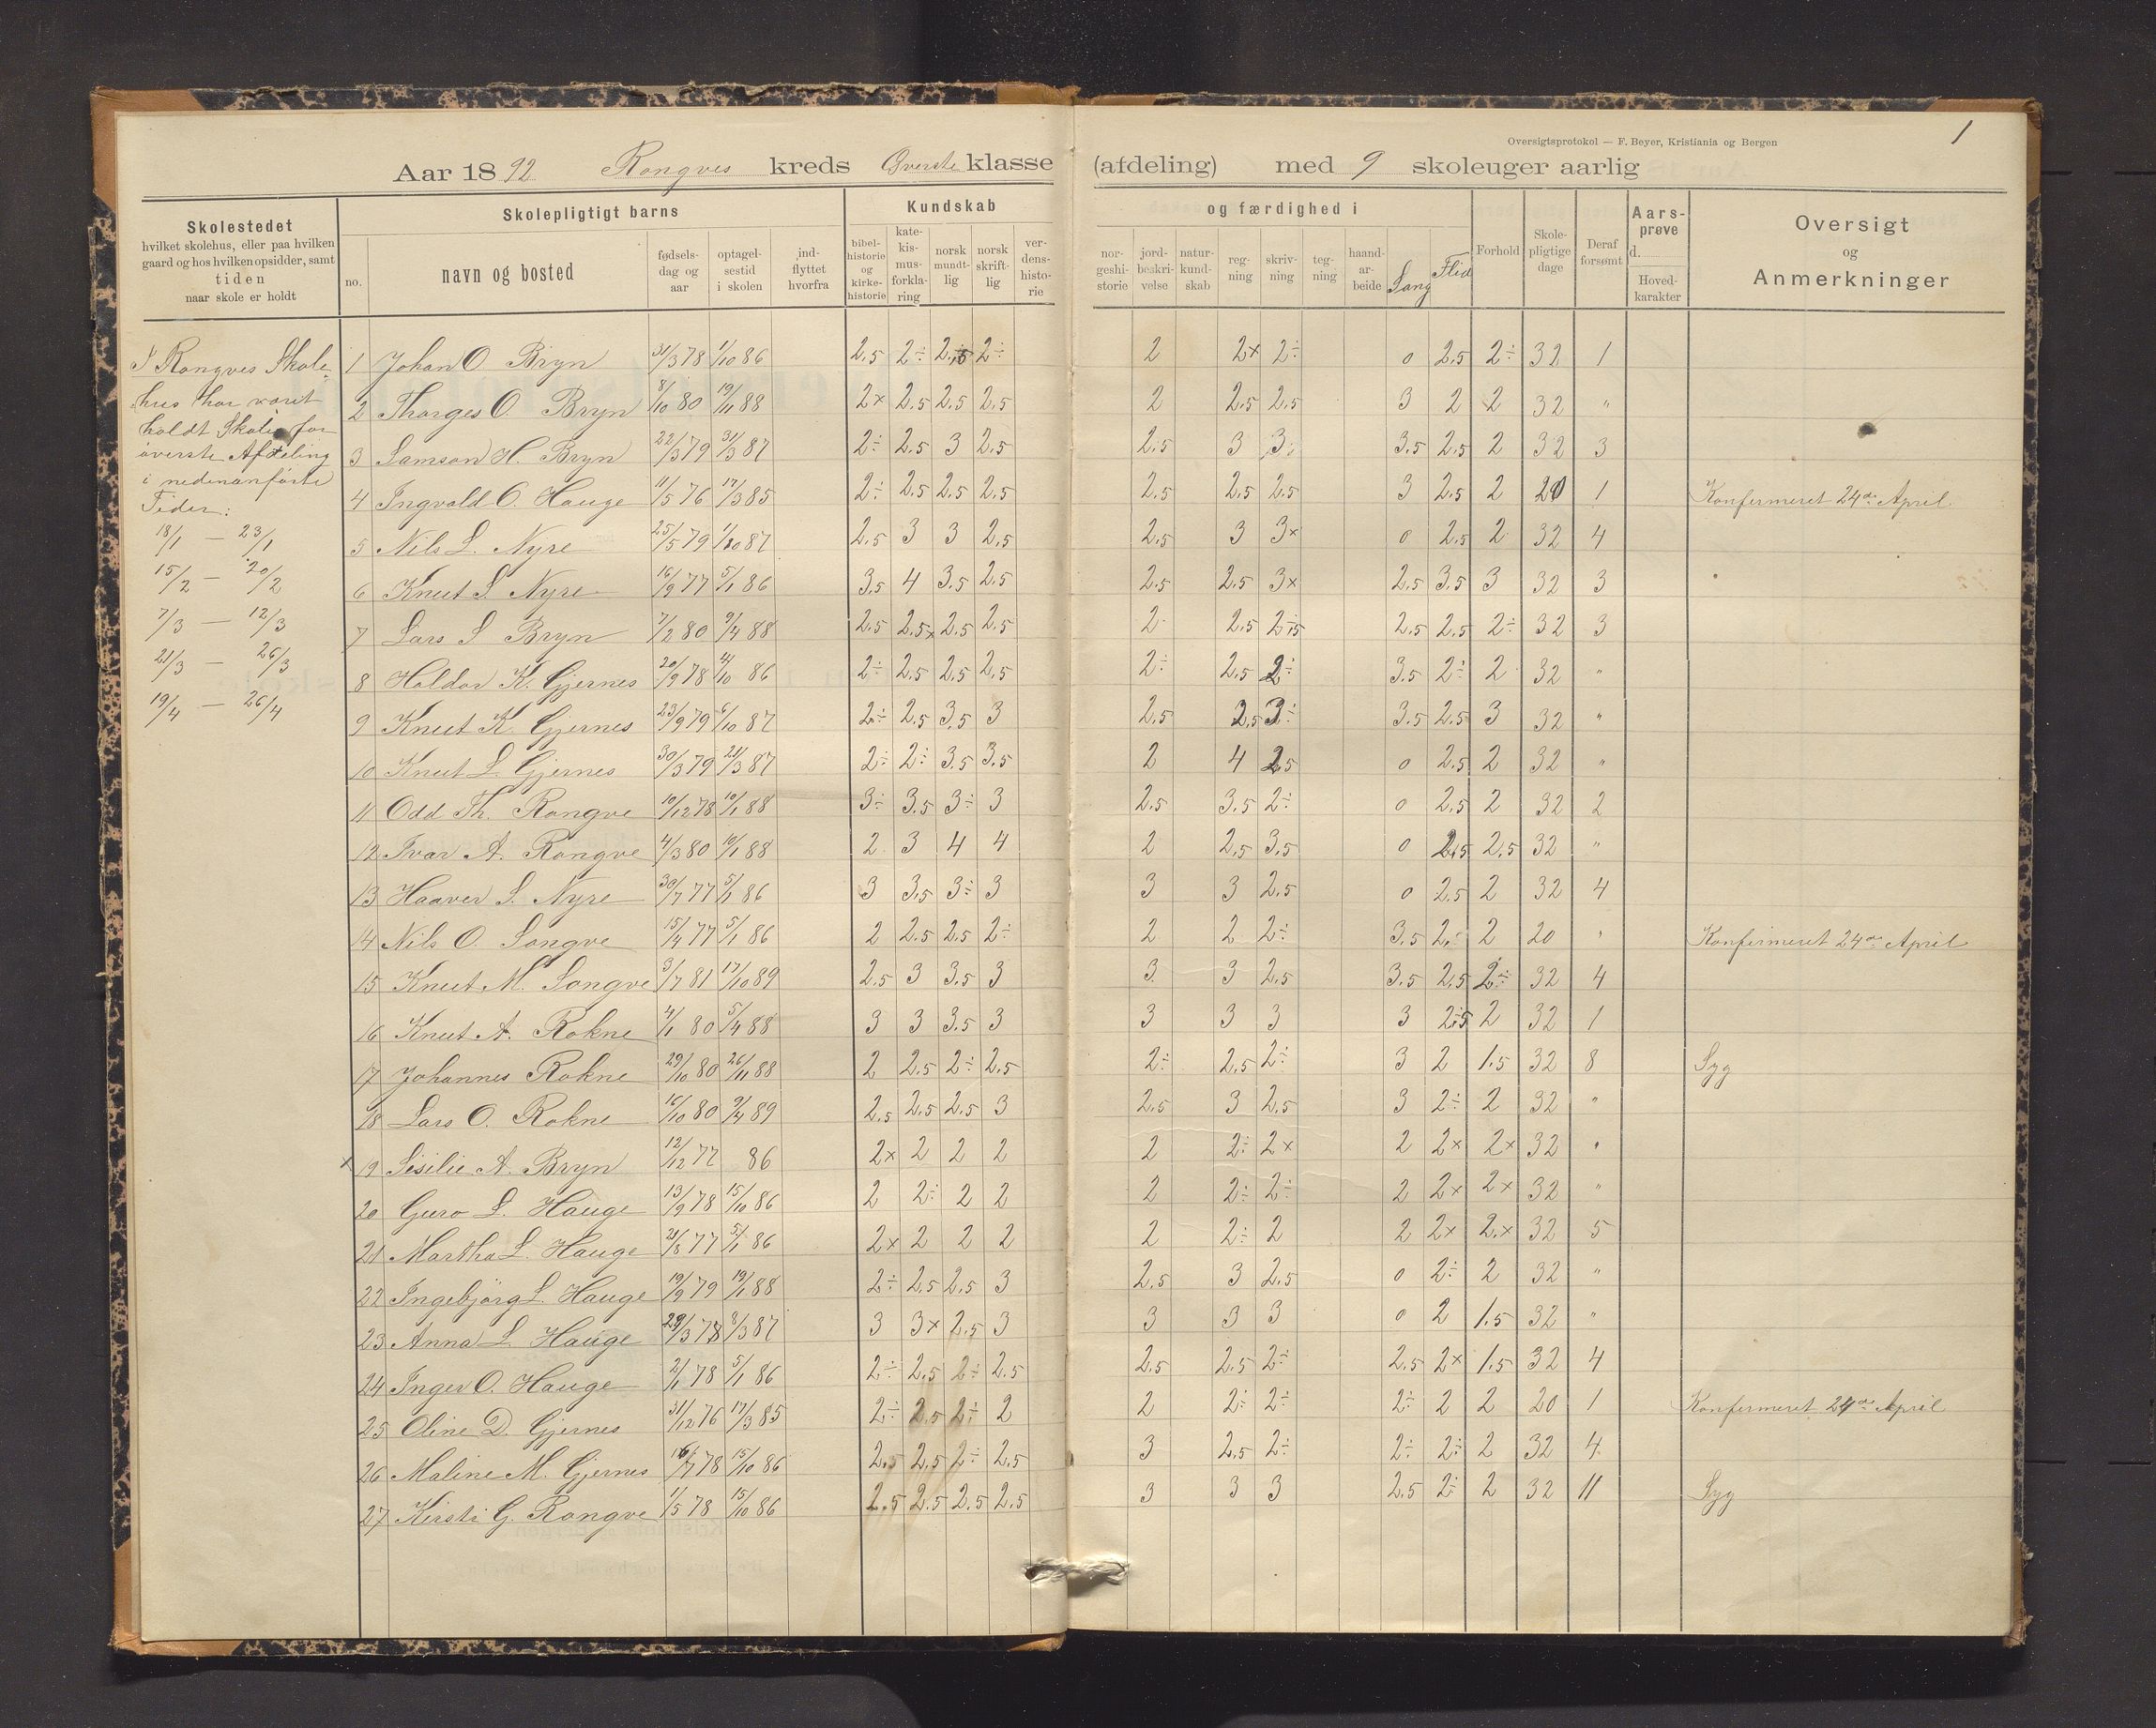 Oversigtsprotokol — F. Beyer, Kristiania og Bergen
1
Aar 1892 Rongves kreds Øverste klasse (afdeling) med 9 skoleuger aarlig
Skolestedet
hvilket skolehus, eller paa hvilken
gaard og hos hvilken opsidder, samt
tiden
naar skole er holdt
Skolepligtigt barns
no.
navn og bosted
fødsels-
dag og
aar
optagel-
sestid
i skolen
ind-
flyttet
hvorfra
Kundskab
bibel-
historie
og
kirke-
historie
kate-
kis-
mus-
forkla-
ring
norsk
mundt-
lig
norsk
skrift-
lig
ver-
dens-
histo-
rie
og færdighed i
nor-
geshi-
storie
jord-
beskri-
velse
natur-
kund-
skab
reg-
ning
skriv-
ning
teg-
ning
haand-
ar-
beide
Sang
Flid
Forhold
Skole-
pligtige
dage
Deraf
forsømt
Aars-
prøve
d.
Hoved-
karakter
Oversigt
og
Anmerkninger
I Rongves Skole-
hus har været
holdt Skole for
øverste Afdeling
i nedenanførte
Tider:
18/1 — 23/1
15/2 — 20/2
7/3 — 12/3
21/3 — 26/3
19/4 — 26/4
1 Johan O. Bryn 31/3 78 1/10 86 2,5 2÷ 2,5 2÷ 2 2× 2÷ 0 2,5 2÷ 32 1
2 Thorges O. Bryn 8/10 80 19/11 88 2× 2,5 2,5 2,5 2 2,5 2,5 3 2 2 32 "
3 Samson H. Bryn 22/3 79 31/3 87 2÷ 2,5 3 2,5 2,5 3 3 3,5 2,5 2 32 3
4 Ingvald O. Hauge 11/5 76 17/3 85 2÷ 2,5 2,5 2,5 2,5 2,5 2,5 3 2,5 2 20 1 Konfirmeret 24de April
5 Nils L. Nyre 25/5 79 1/10 87 2,5 3 3 2,5 2,5 3 3× 0 2,5 2 32 4
6 Knut S. Nyre 16/9 77 5/1 86 3,5 4 3,5 2,5 2,5 2,5 3× 2,5 3,5 3 32 3
7 Lars S. Bryn 7/2 80 9/4 88 2,5 2,5× 2,5 2,5 2 2,5 2,5 2,5 2,5 2÷ 32 3
8 Haldor K. Gjernes 20/9 78 4/10 86 2÷ 2,5 2,5 2,5 2÷ 2,5 2÷ 3,5 2÷ 2 32 "
9 Knut K. Gjernes 23/9 79 6/10 87 2÷ 2,5 3,5 3 2,5 2,5 3÷ 3,5 2,5 3 32 "
10 Knut L. Gjernes 30/3 79 21/3 87 2÷ 2÷ 3,5 3,5 2 4 2,5 0 2,5 2 32 "
11 Odd Th. Rongve 10/12 78 10/1 88 3÷ 3,5 3÷ 3 2,5 3,5 2÷ 0 2,5 2 32 2
12 Ivar A. Rongve 4/3 80 10/1 88 2 3 4 4 2 2,5 3,5 0 2,5 2,5 32 "
13 Haaver S. Nyre 30/7 77 5/1 86 3 3,5 3÷ 3 3 3 2,5 0 2,5 2 32 4
14 Nils O. Songve 15/4 77 5/1 86 2 2,5 2,5 2÷ 2 2 2÷ 3,5 2,5 2 20 " Konfirmeret 24de April
15 Knut M. Songve 3/7 81 17/10 89 2,5 3 3,5 3 3 3 2,5 3,5 2,5 2÷ 32 4
16 Knut A. Rokne 4/1 80 5/4 88 3 3 3,5 3 3 3 3 3 2,5 2 32 1
17 Johannes Rokne 29/10 80 26/11 88 2 2,5 2÷ 2,5 2÷ 2,5 2÷ 3 2 1,5 32 8 Syg
18 Lars O. Rokne 16/10 80 9/4 89 2,5 2,5 2,5 3 2,5 3 2,5 3 2÷ 2 32 "
× 19 Sisilie A. Bryn 12/12 77 86 2× 2 2 2 2 2÷ 2× 2 2× 2× 32 "
20 Guro L. Hauge 13/9 78 15/10 86 2 2÷ 2 2 2 2÷ 2÷ 2 2× 2× 32 "
21 Martha L. Hauge 21/8 77 5/1 86 2× 2 2 2 2 2÷ 2 2 2× 2× 32 5
22 Ingebjørg L. Hauge 19/9 79 19/1 88 2÷ 2,5 2,5 3 2,5 3 2,5 0 2÷ 2 32 "
23 Anna L. Hauge 29/3 78 8/3 87 3 3× 2,5 3 3 3 3 0 2 1,5 32 "
24 Inger O. Hauge 2/1 78 5/1 86 2÷ 2,5 2÷ 2,5 2,5 2,5 2÷ 2,5 2× 1,5 32 4
25 Oline D. Gjernes 31/12 76 17/3 85 2÷ 2,5 2÷ 2 2 2÷ 2÷ 2÷ 2 2 20 1 Konfermeret 24de April
26 Maline M. Gjernes 16/7 78 15/10 86 2,5 2,5 2÷ 2,5 3 2,5 2÷ 2÷ 2÷ 2 32 4
27 Kirsti G. Rongve 1/5 78 15/10 86 2,5 2,5 2,5 2,5 3 3 3 2,5 2÷ 2 32 11 Syg